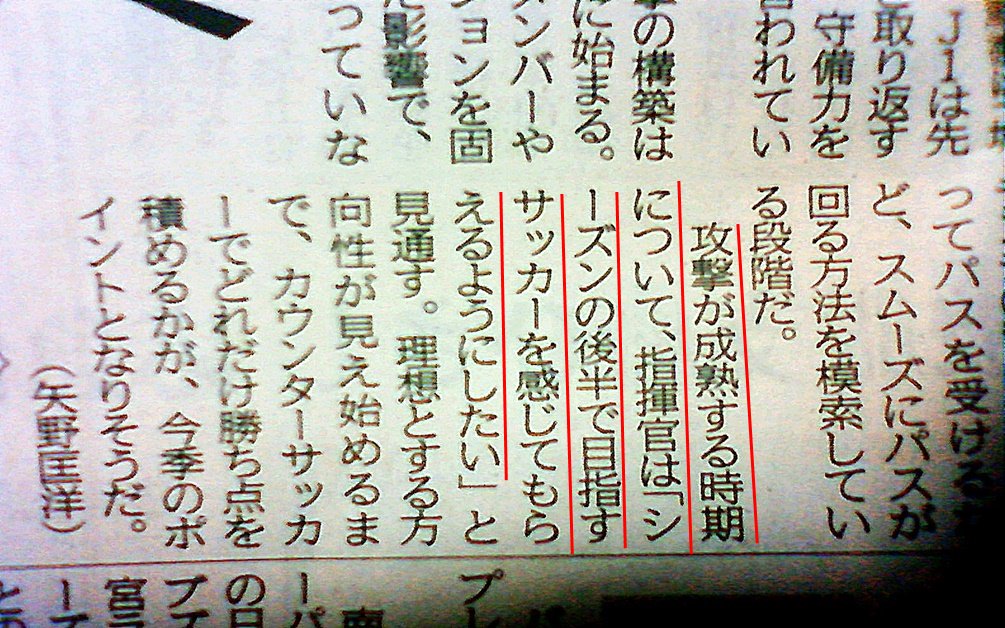 J1は先
取り返す
守備力を
われてい
の構築は
に始まる。
ンバーや
ョンを固
影響で、
っていな
ってパスを受ける
ど、スムーズにパスが
回る方法を模索してい
る段階だ。
攻撃が成熟する時期
について、指揮官は「シ
ーズンの後半で目指す
サッカーを感じてもら
えるようにしたい」と
見通す。理想とする方
向性が見え始めるま
で、カウンターサッカ
ーでどれだけ勝ち点を
積めるかが、今季のポ
イントとなりそうだ。
(矢野匡洋)
プレ
ーパ
の日
プス
官ラ
ーズ